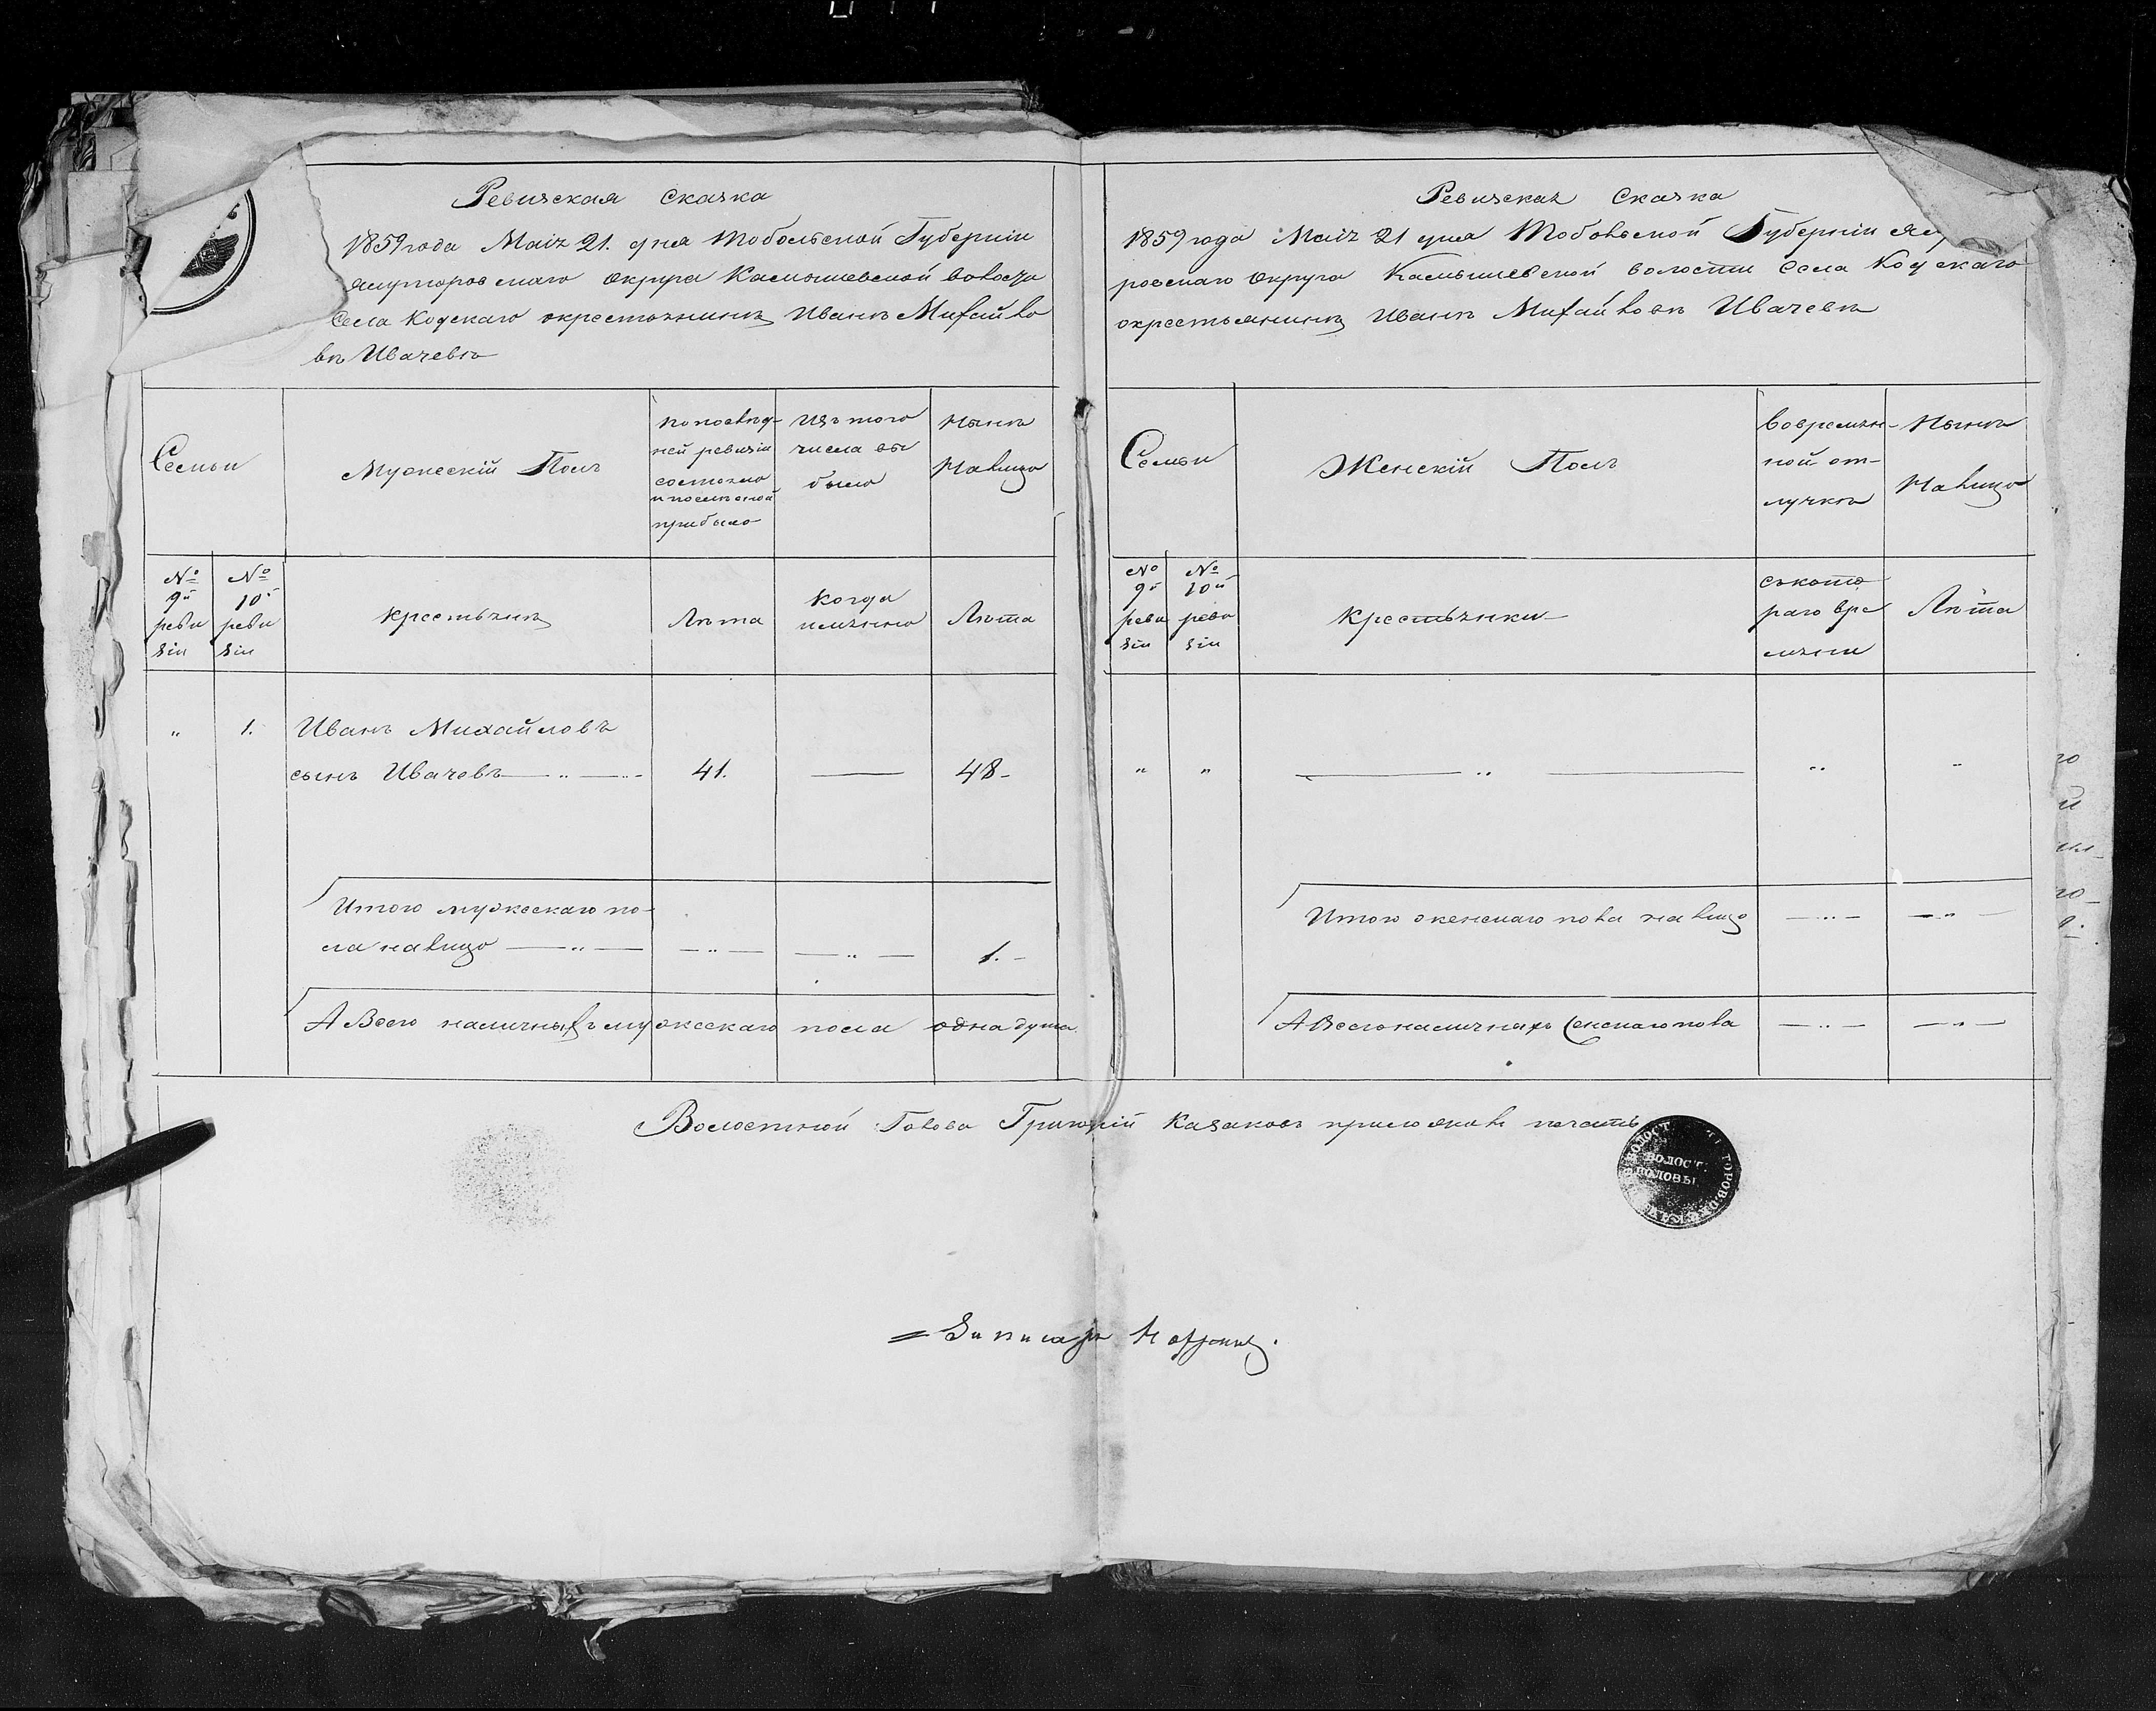 Ревизская сказка
1859 года Маія 21. дня Тобольской Губерніи
Ялуторовскаго округа Камышевской волости
Села Кодскаго крестьянинъ Иванъ Михайло
въ Ивачевъ
Семьи
Мужескій Полъ
по послѣд-
ней ревизіи
состояло
и послѣ оной
прибыло
Изъ того
числа вы
было
Нынѣ
Налицо
№
9й
реви
зіи
№
10й
реви
зіи
Крестьянъ
Лѣта
Когда
именно
Лѣта
„ 1. Иванъ Михайловъ
сынъ Ивачевъ — „ — 41. — 48-
Итого мужескаго по-
ла налицо — „ — — „ — — „ — 1. -
А Всего наличныхъ мужескаго пола одна душа.
Ревизская Сказка
1859 года Маія 21 дня Тобольской Губерніи Ялу
ровскаго Округа Камышевской волости Села Кодскаго
крестьянинъ Иванъ Михайловъ Ивачевъ
Семьи
Женскій Полъ
Во времян-
ной от-
лучкѣ
Нынѣ
Налицо
№
9й
реви
зіи
№
10й
реви
зіи
Крестьянки
съ кото
раго вре
мени
Лѣта
„ „ — „ — „ „
Итого женскаго пола налицо — „ — — „ —
А Всего наличныхъ женскаго пола — „ — — „ —
Волостной Голова Григорій Казаковъ приложилъ печать
ВОЛОСТ
ГОЛОВЫ
= За писаря